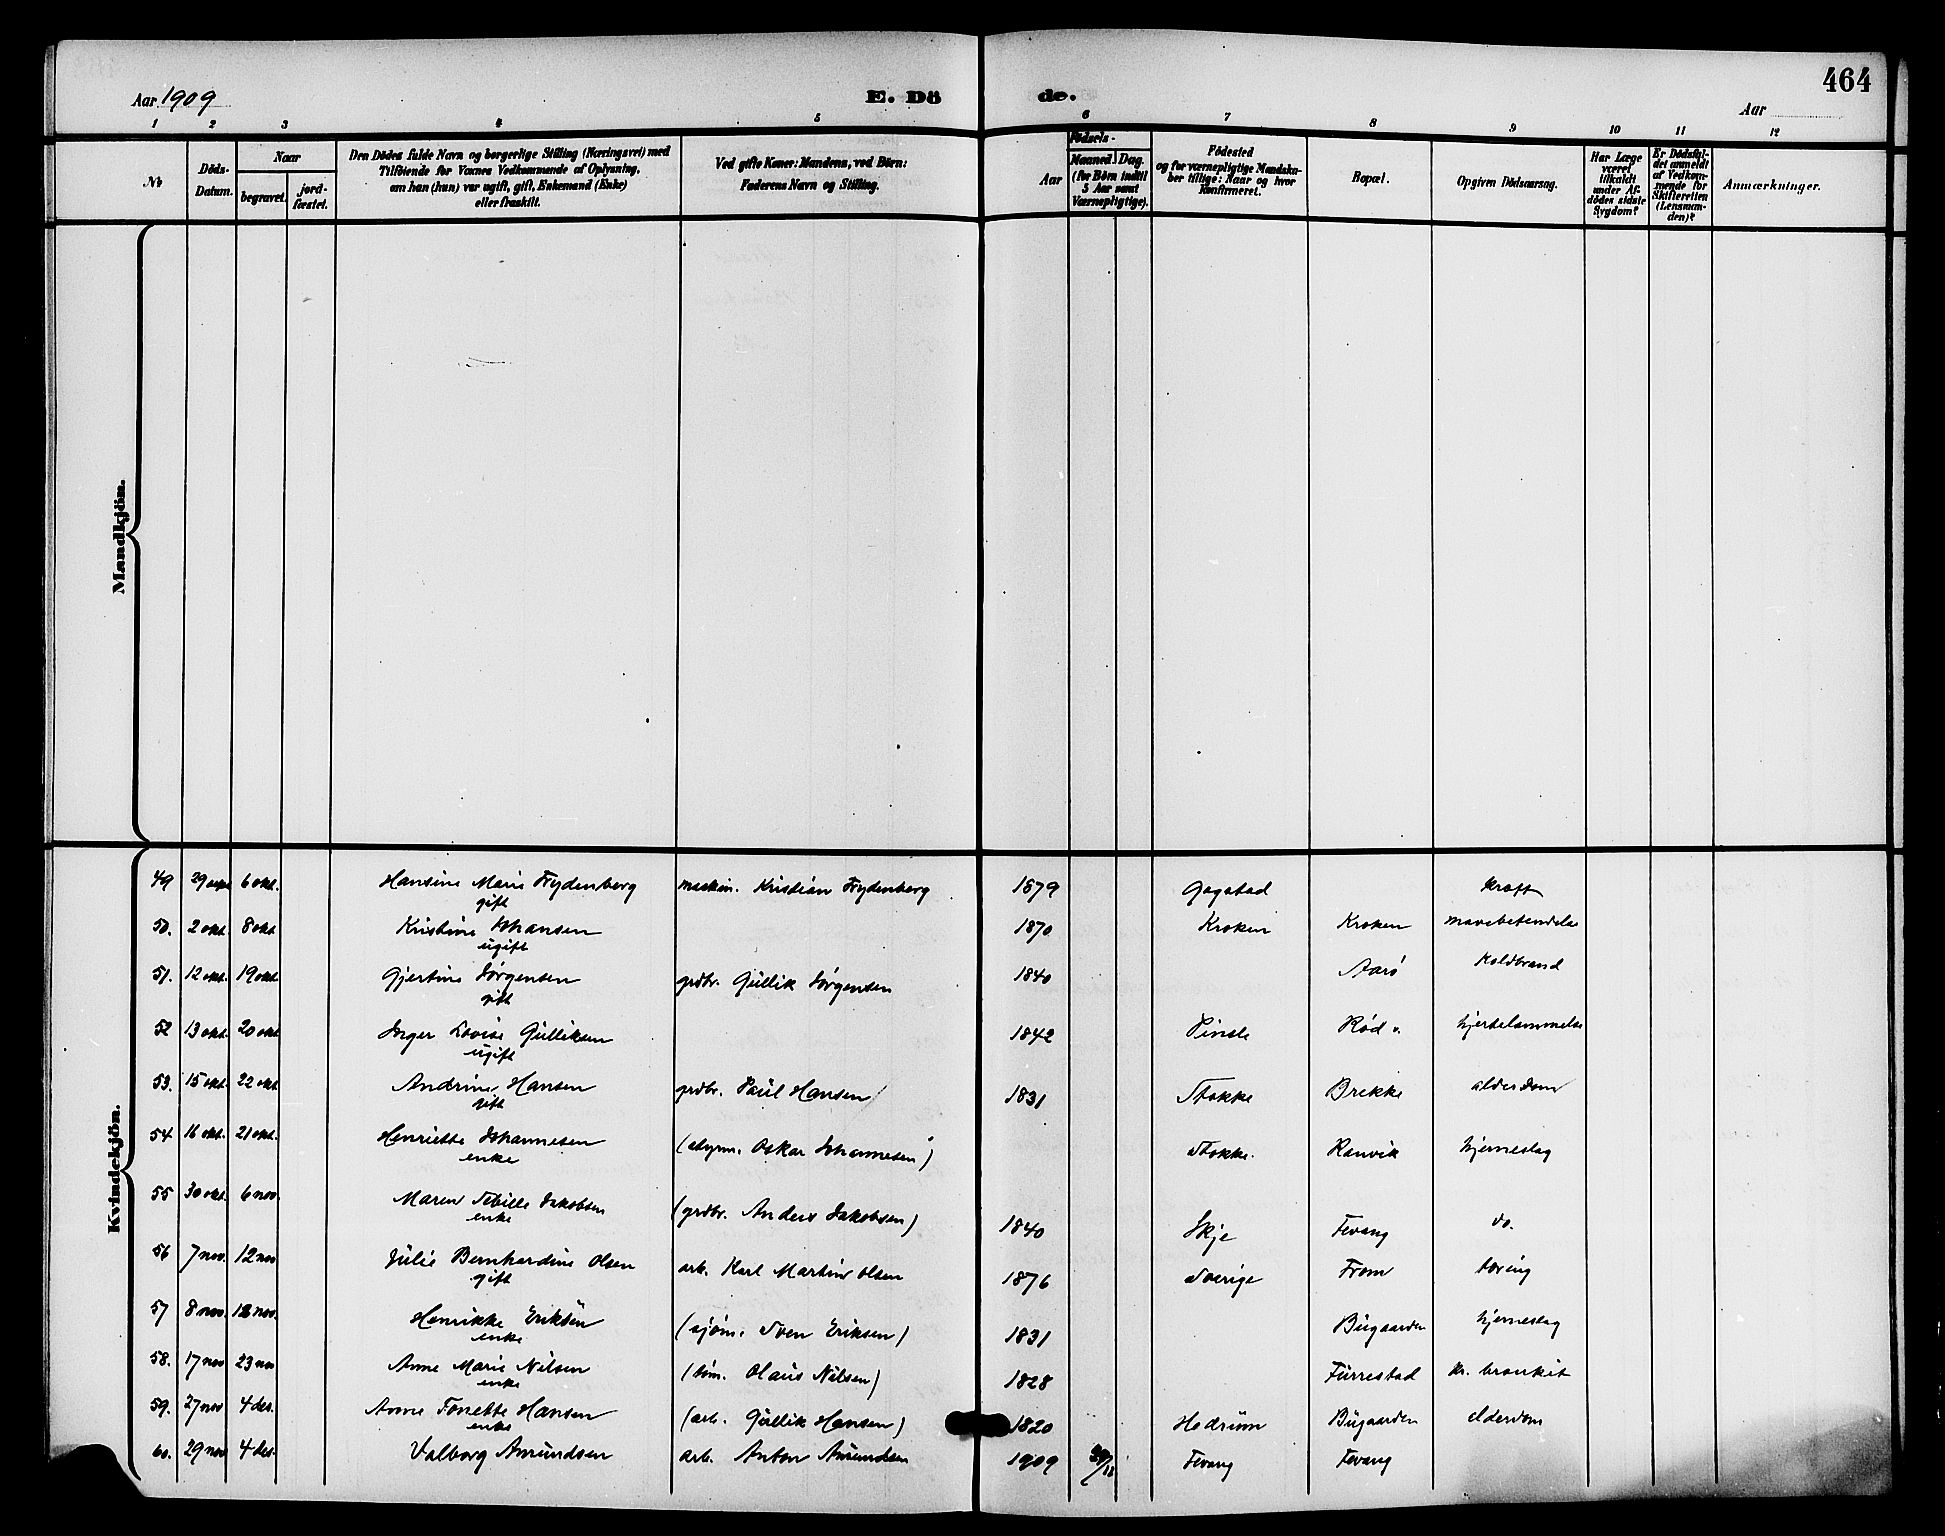 464
Aar 1909
E. Dö
de.
Aar
1 2 3 4 5 6 7 8 9 10 11 12
No
Döds-Datum.
Naar
begravet.
jord-fæstet.
Den Dödes fulde Navn og borgerlige Stilling (Næringsvei) med
Tilföiende for Voxnes Vedkommende af Oplysning,
om han (hun) var ugift, gift, Enkemand (Enke)
eller fraskilt.
Ved gifte Koner: Mandens, ved Börn:
Faderens Navn og Stilling.
Födsels-
Aar
Maaned. Dag.
(for Börn indtil
5 Aar samt
Værnepligtige).
Födested
og for værnepligtige Mandska-
ber tillige: Naar og hvor
Konfirmeret.
Bopæl.
Opgiven Dödsaarsag.
Har Læge
været
tilkaldt
under Af-
dödes sidste
Sygdom?
Er Dödsfal-
det anmeldt
af Vedkom-
mende for
Skifteretten
(Lensman-
den)?
Anmærkninger.
Mandkjön.
Kvindekjön.
49 29 sept 6 okt. Hansine Marie Frydenberg maskin. Kristian Frydenberg 1879 Gogstad kræft
gift
50. 2 okt. 8 okt Kristine Johansen 1870 Kroken Kroken mavebetendelse
ugift
51. 12 okt. 19 okt Gjertine Jørgensen grdbr. Gullik Jørgensen 1840 Aarø Koldbrand
gift
52 13 okt. 20 okt Inger Lovise Gulliksen 1842 Pinsle Rød v. hjertelammelse
ugift
53. 15 okt. 22 okt Andrine Hansen grdbr. Paul Hansen 1831 Stokke Brekke alderdom
gift
54 16 okt. 21 okt. Henriette Johannesen (styrm. Oskar Johannesen) Stokke. Ranvik hjerneslag
enke
55 30 okt. 6 nov. Maren Sibille Jakobsen (grdbr. Anders Jakobsen) 1840 Skje Fevang do.
enke
56 7 nov. 12 nov Julie Bernhardine Olsen arb. Karl Martin Olsen 1876 Sverige From tæring
gift
57 8 nov. 12 nov. Henrikke Eriksen (sjøm. Sven Eriksen) 1831 Bugaarden hjerneslag
enke
58. 17 nov 23 nov Anne Marie Nilsen (tøm. Olaus Nilsen) 1828 Furrestad kr. bronkit
enke
59. 27 nov 4 des. Anne Tonette Hansen (arb. Gullik Hansen) 1820 Hedrum Bugaarden alderdom
enke
60. 29 nov 4 des. Valborg Amundsen arb. Anton Amundsen 1909 Fevang Fevang